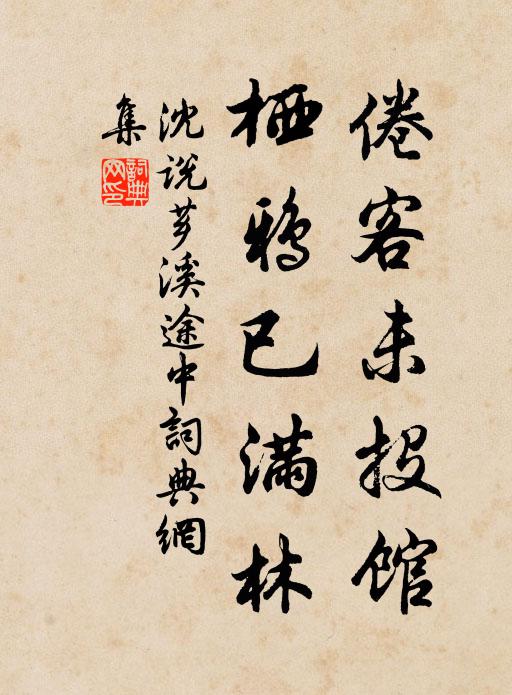 倦客未投馆
栖鸦已满林
沈说梦溪途中詞典網
集
詞典网印